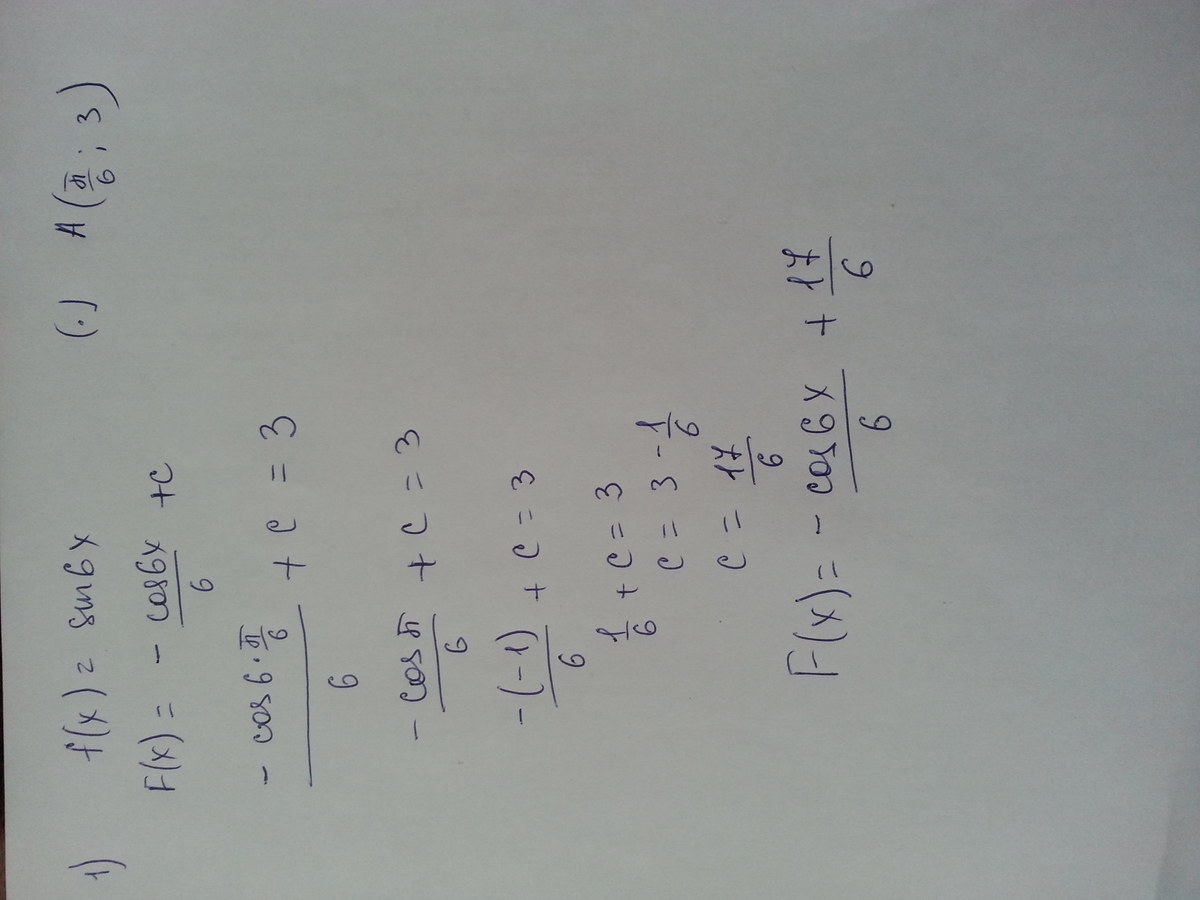 1) f(x) = sin6x (·) A(π/6; 3)
F(x) = - cos6x/6 + c
- cos6·π/6 / 6 + c = 3
- cosπ/6 + c = 3
-(-1)/6 + c = 3
1/6 + c = 3
c = 3 - 1/6
c = 17/6
F(x) = - cos6x/6 + 17/6